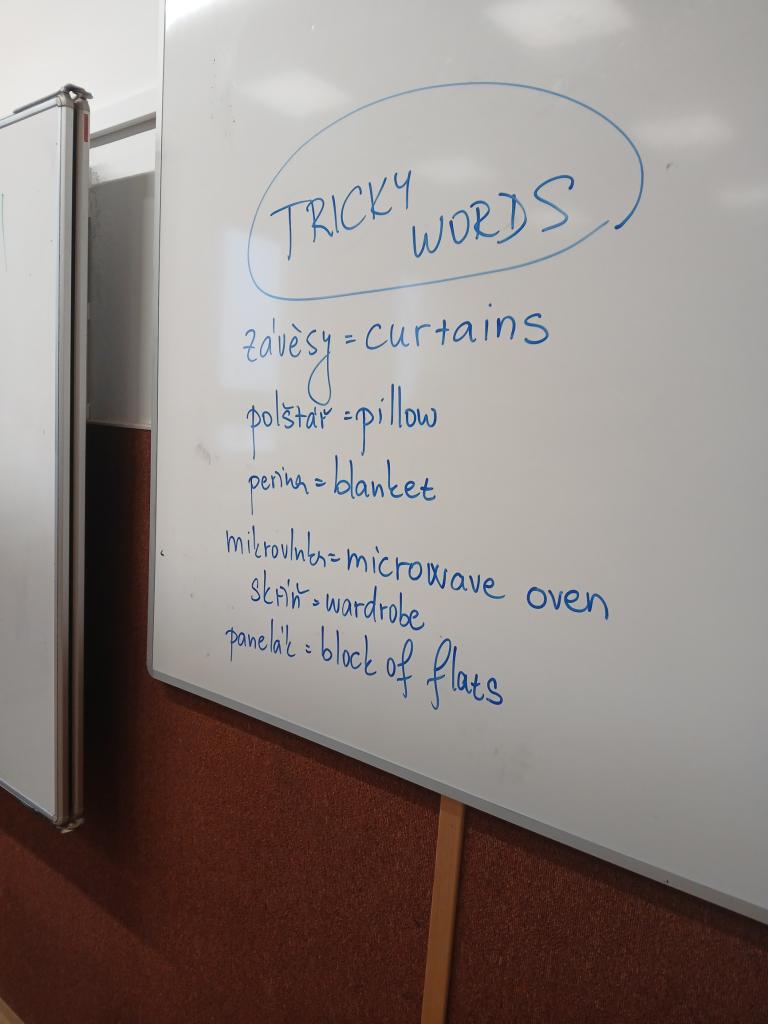 TRICKY
WORDS
závěsy = curtains
polštář = pillow
peřina = blanket
mikrovlnka = microwave oven
skříň = wardrobe
panelák = block of flats